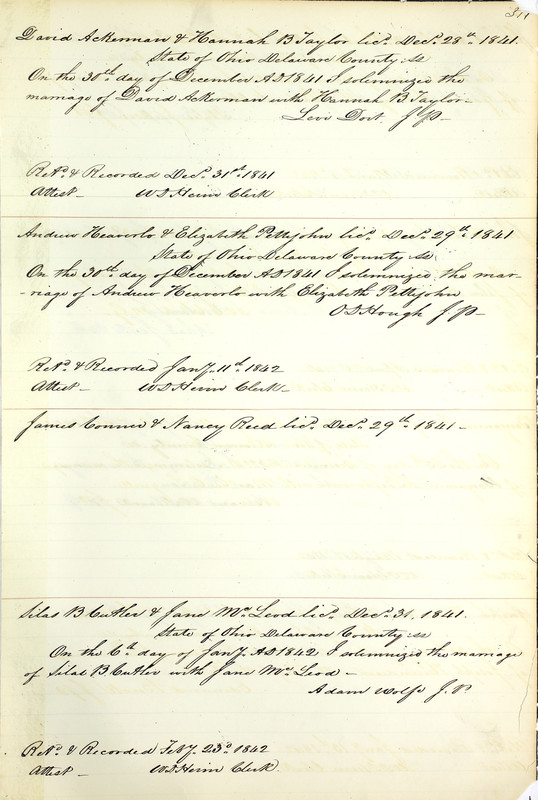 311
David Ackerman & Hannah B Taylor lic.d Dec.r 28th 1841.
State of Ohio Delaware County: ss
On the 30th day of December AD 1841 I solemnized the
marriage of David Ackerman with Hannah B. Taylor-
Levi Dort J P-
Ret.d & Recorded Dec.r 31st 1841
Attest- W D Heim Clerk
Andrew Heaverlo & Elizabeth Pettijohn lic.d Dec.r 29th 1841
State of Ohio Delaware County ss
On the 30th day of December AD 1841 I solemnized the mar-
-riage of Andrew Heaverlo with Elizabeth Pettijohn
O D Hough J P-
Ret.d & Recorded Jan.y 11th 1842
Attest- W D Heim Clerk-
James Conner & Nancy Reed lic.d Dec.r 29th 1841-
Silas B Cutler & Jane McLeod lic.d Dec.r 31, 1841.
State of Ohio Delaware County: ss
On the 6th day of Jan.y AD 1842 I solemnized the marriage
of Silas B. Cutler with Jane McLeod-
Adam Wolfe J.P.
Ret.d & Recorded Feb.y 23d 1842
Attest- W D Heim Clerk.